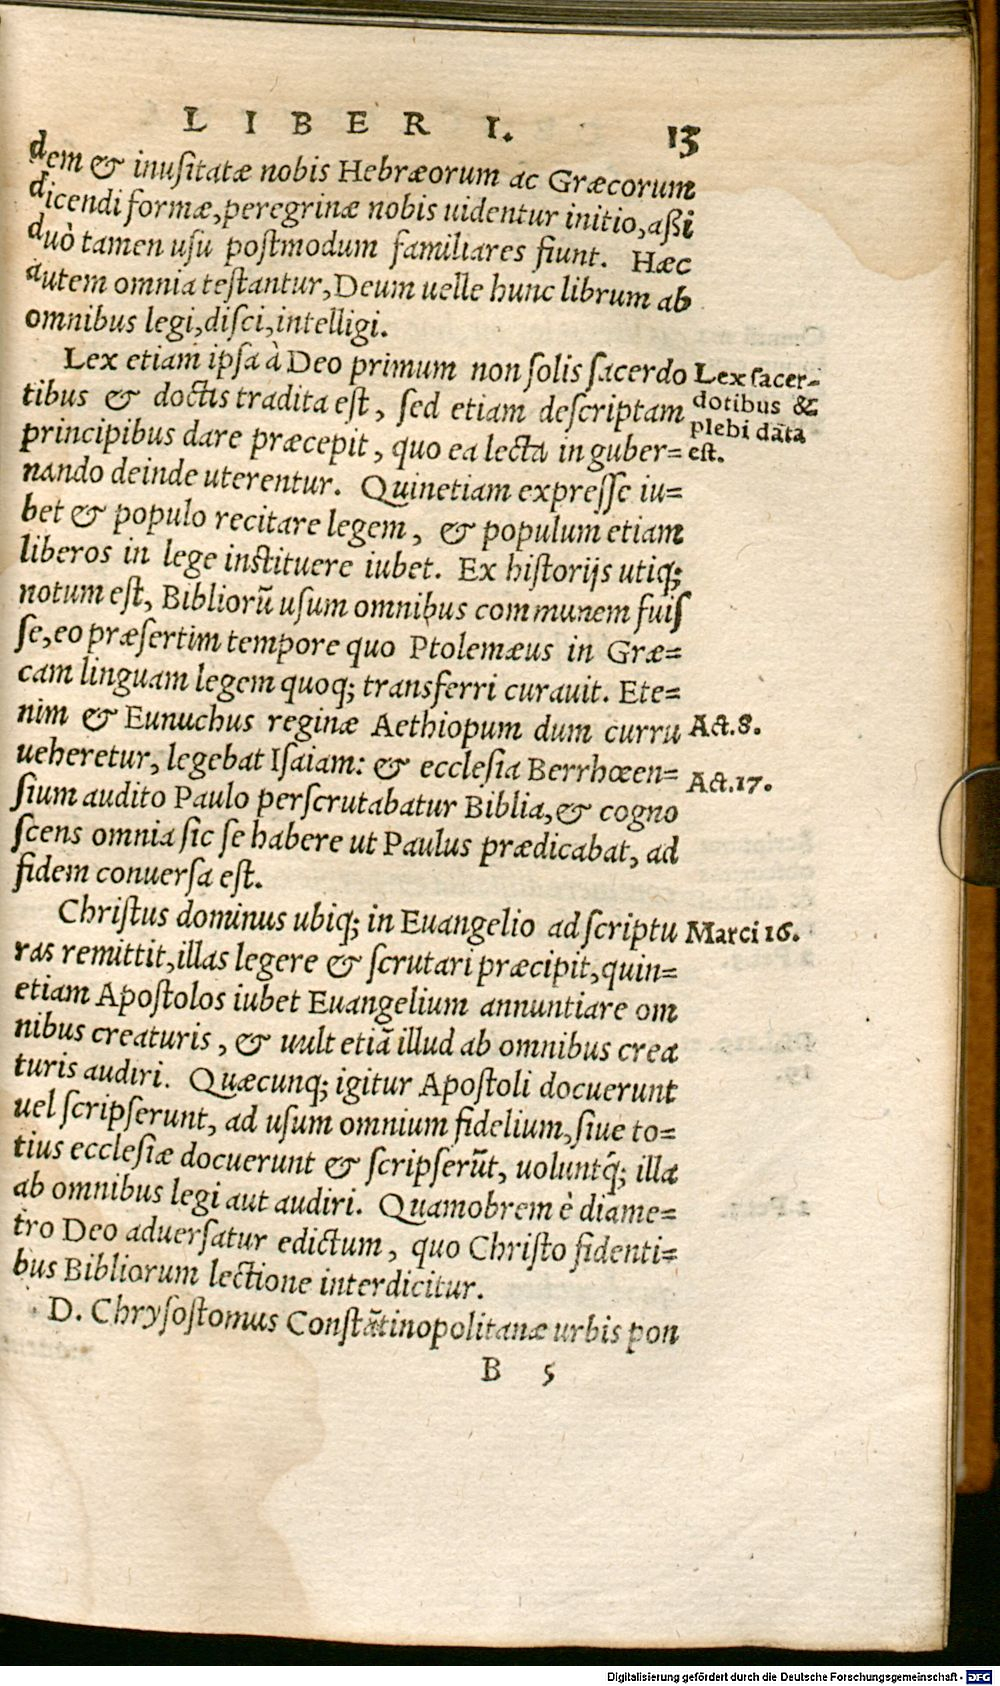 LIBER I. 13
dem & inusitatæ nobis Hebræorum ac Græcorum
dicendi formæ, peregrinæ nobis uidentur initio, aßi
duò tamen usu postmodum familiares fiunt. Hæc
autem omnia testantur, Deum uelle hunc librum ab
omnibus legi, disci, intelligi.
Lex etiam ipsa à Deo primum non solis sacerdo
tibus & doctis tradita est, sed etiam descriptam
principibus dare præcepit, quo ea lecta in guber=
nando deinde uterentur. Quinetiam expresse iu=
bet & populo recitare legem, & populum etiam
liberos in lege instituere iubet. Ex historijs utiq;
notum est, Bibliorũ usum omnibus communem fuis
se, eo præsertim tempore quo Ptolemæus in Græ=
cam linguam legem quoq; transferri curauit. Ete=
nim & Eunuchus reginæ Aethiopum dum curru
ueheretur, legebat Isaiam: & ecclesia Berrhœen=
sium audito Paulo perscrutabatur Biblia, & cogno
scens omnia sic se habere ut Paulus prædicabat, ad
fidem conuersa est.
Christus dominus ubiq; in Euangelio ad scriptu
ras remittit, illas legere & scrutari præcipit, quin=
etiam Apostolos iubet Euangelium annuntiare om
nibus creaturis, & uult etiã illud ab omnibus crea
turis audiri. Quæcunq; igitur Apostoli docuerunt
uel scripserunt, ad usum omnium fidelium, siue to=
tius ecclesiæ docuerunt & scripserũt, uoluntq́; illa
ab omnibus legi aut audiri. Quamobrem è diame=
tro Deo aduersatur edictum, quo Christo fidenti=
bus Bibliorum lectione interdicitur.
D. Chrysostomus Constãtinopolitanæ urbis pon
B 5
Lex sacer=
dotibus &
plebi data
est.
Act. 8.
Act. 17.
Marci 16.
Digitalisierung gefördert durch die Deutsche Forschungsgemeinschaft - DFG